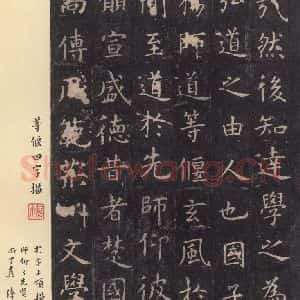 然後知達學之為
弘道之由人也國子
楊師道等偃玄風於
聞至道於先師仰彼
願宣盛德昔者楚國
尚傳風範荊州文學
等偃四字描